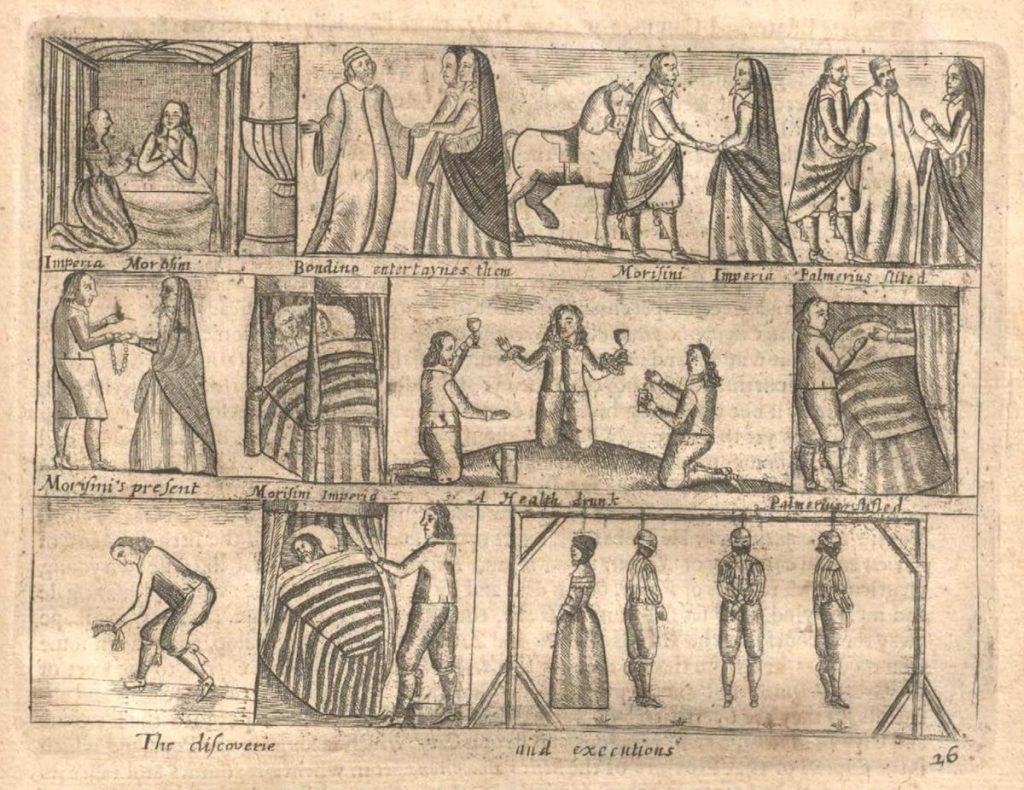 Imperia Moroſini Bondino entertaynes them Moriſini Imperia Palmerius
Moriſini's preſent Moriſini Imperia A Health drunk Palmerius
The diſcoverie and executions
26